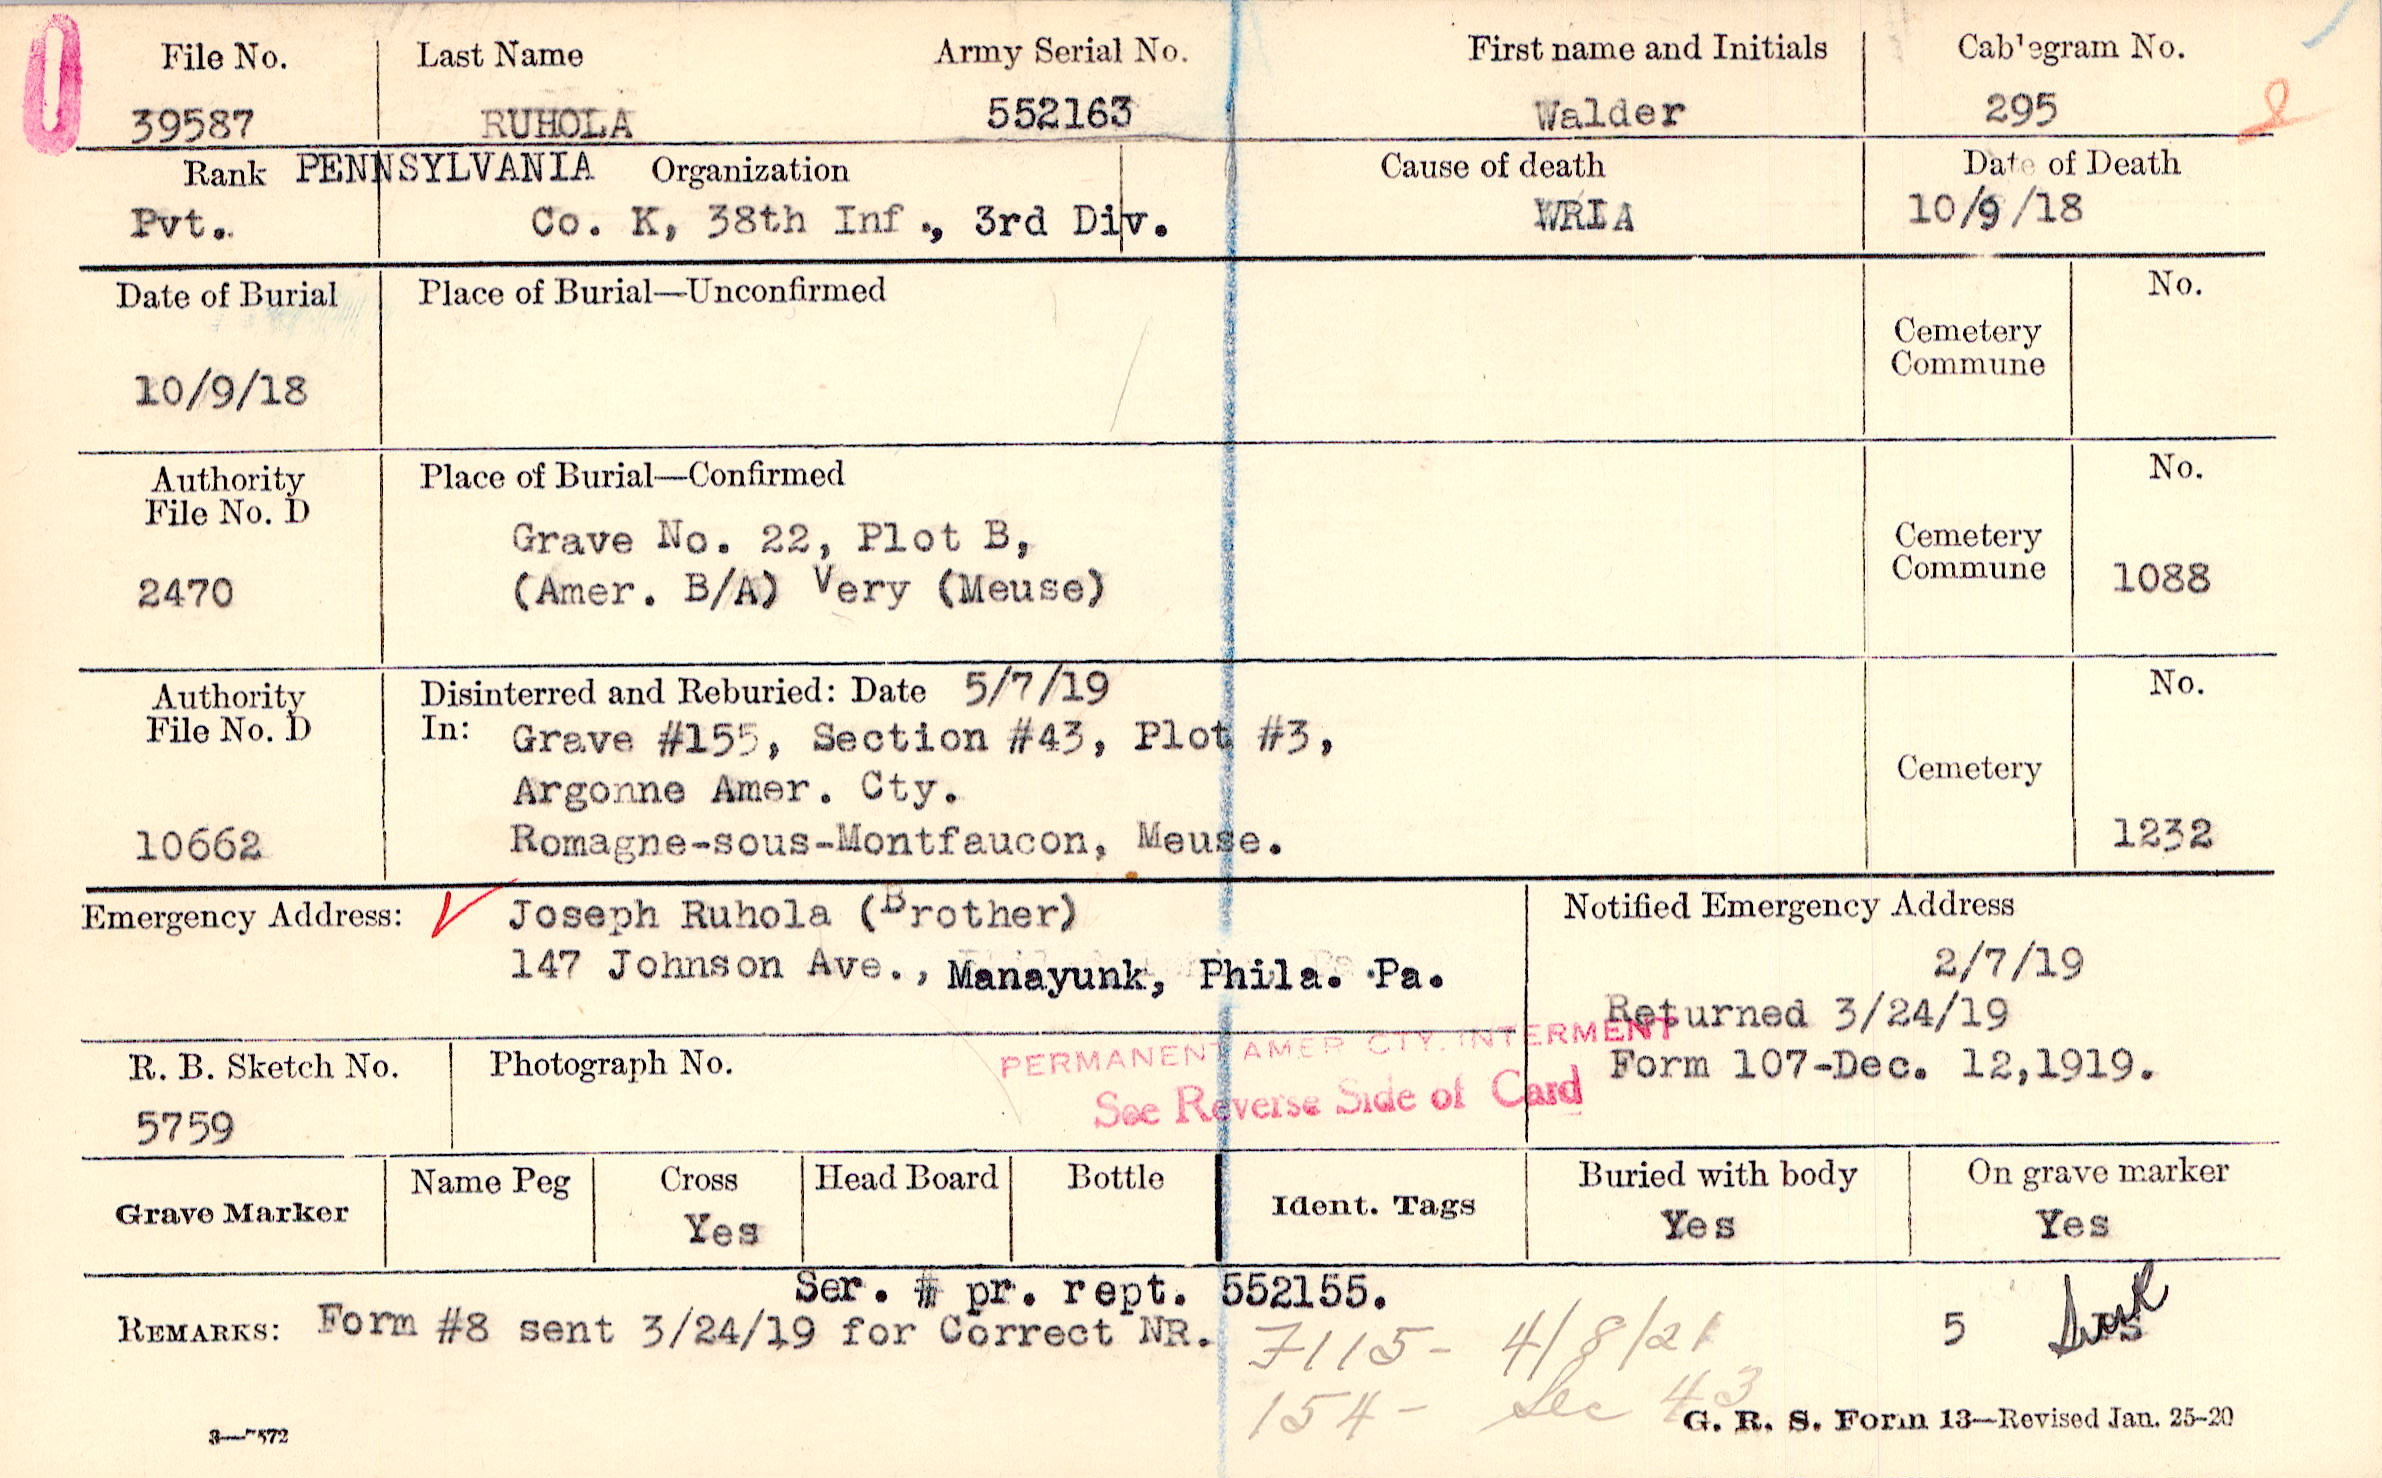 File No. Last Name Army Serial No. First name and Initials Cablegram No.
39587 RUHOLA 552163 Walder 295
Rank PENNSYLVANIA Organization Cause of death Date of Death
Pvt. Co. K, 38th Inf., 3rd Div. WRIA 10/9/18
Date of Burial Place of Burial—Unconfirmed No.
Cemetery
Commune
10/9/18
Authority Place of Burial—Confirmed No.
File No. D
Grave No. 22, Plot B, Cemetery
2470 (Amer. B/A) Very (Meuse) Commune 1088
Authority Disinterred and Reburied: Date 5/7/19 No.
File No. D In: Grave #155, Section #43, Plot #3,
Argonne Amer. Cty. Cemetery
10662 Romagne-sous-Montfaucon, Meuse. 1232
Emergency Address: Joseph Ruhola (Brother) Notified Emergency Address
147 Johnson Ave., Manayunk, Phila. Pa. 2/7/19
Returned 3/24/19
PERMANENT AMER CTY. INTERMENT
R. B. Sketch No. Photograph No. Form 107-Dec. 12,1919.
See Reverse Side of Card
5759
Grave Marker Name Peg Cross Head Board Bottle Ident. Tags Buried with body On grave marker
Yes Yes Yes
Ser. # pr. rept. 552155.
REMARKS: Form #8 sent 3/24/19 for Correct NR. 5
7115- 4/8/21
154- Sec 43
3—7572 G. R. S. Form 13—Revised Jan. 25-20